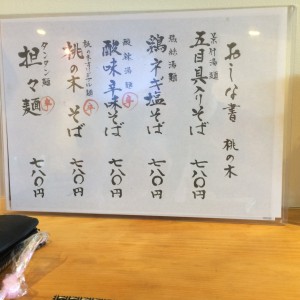 おしな書 桃の木
五目具入りそば 七八〇円
鶏ネギ塩そば 七八〇円
酸辣湯麺
酸味辛味そば 辛 七八〇円
桃の木そば 辛 七八〇円
タンタン麺
担々麺 辛 七八〇円